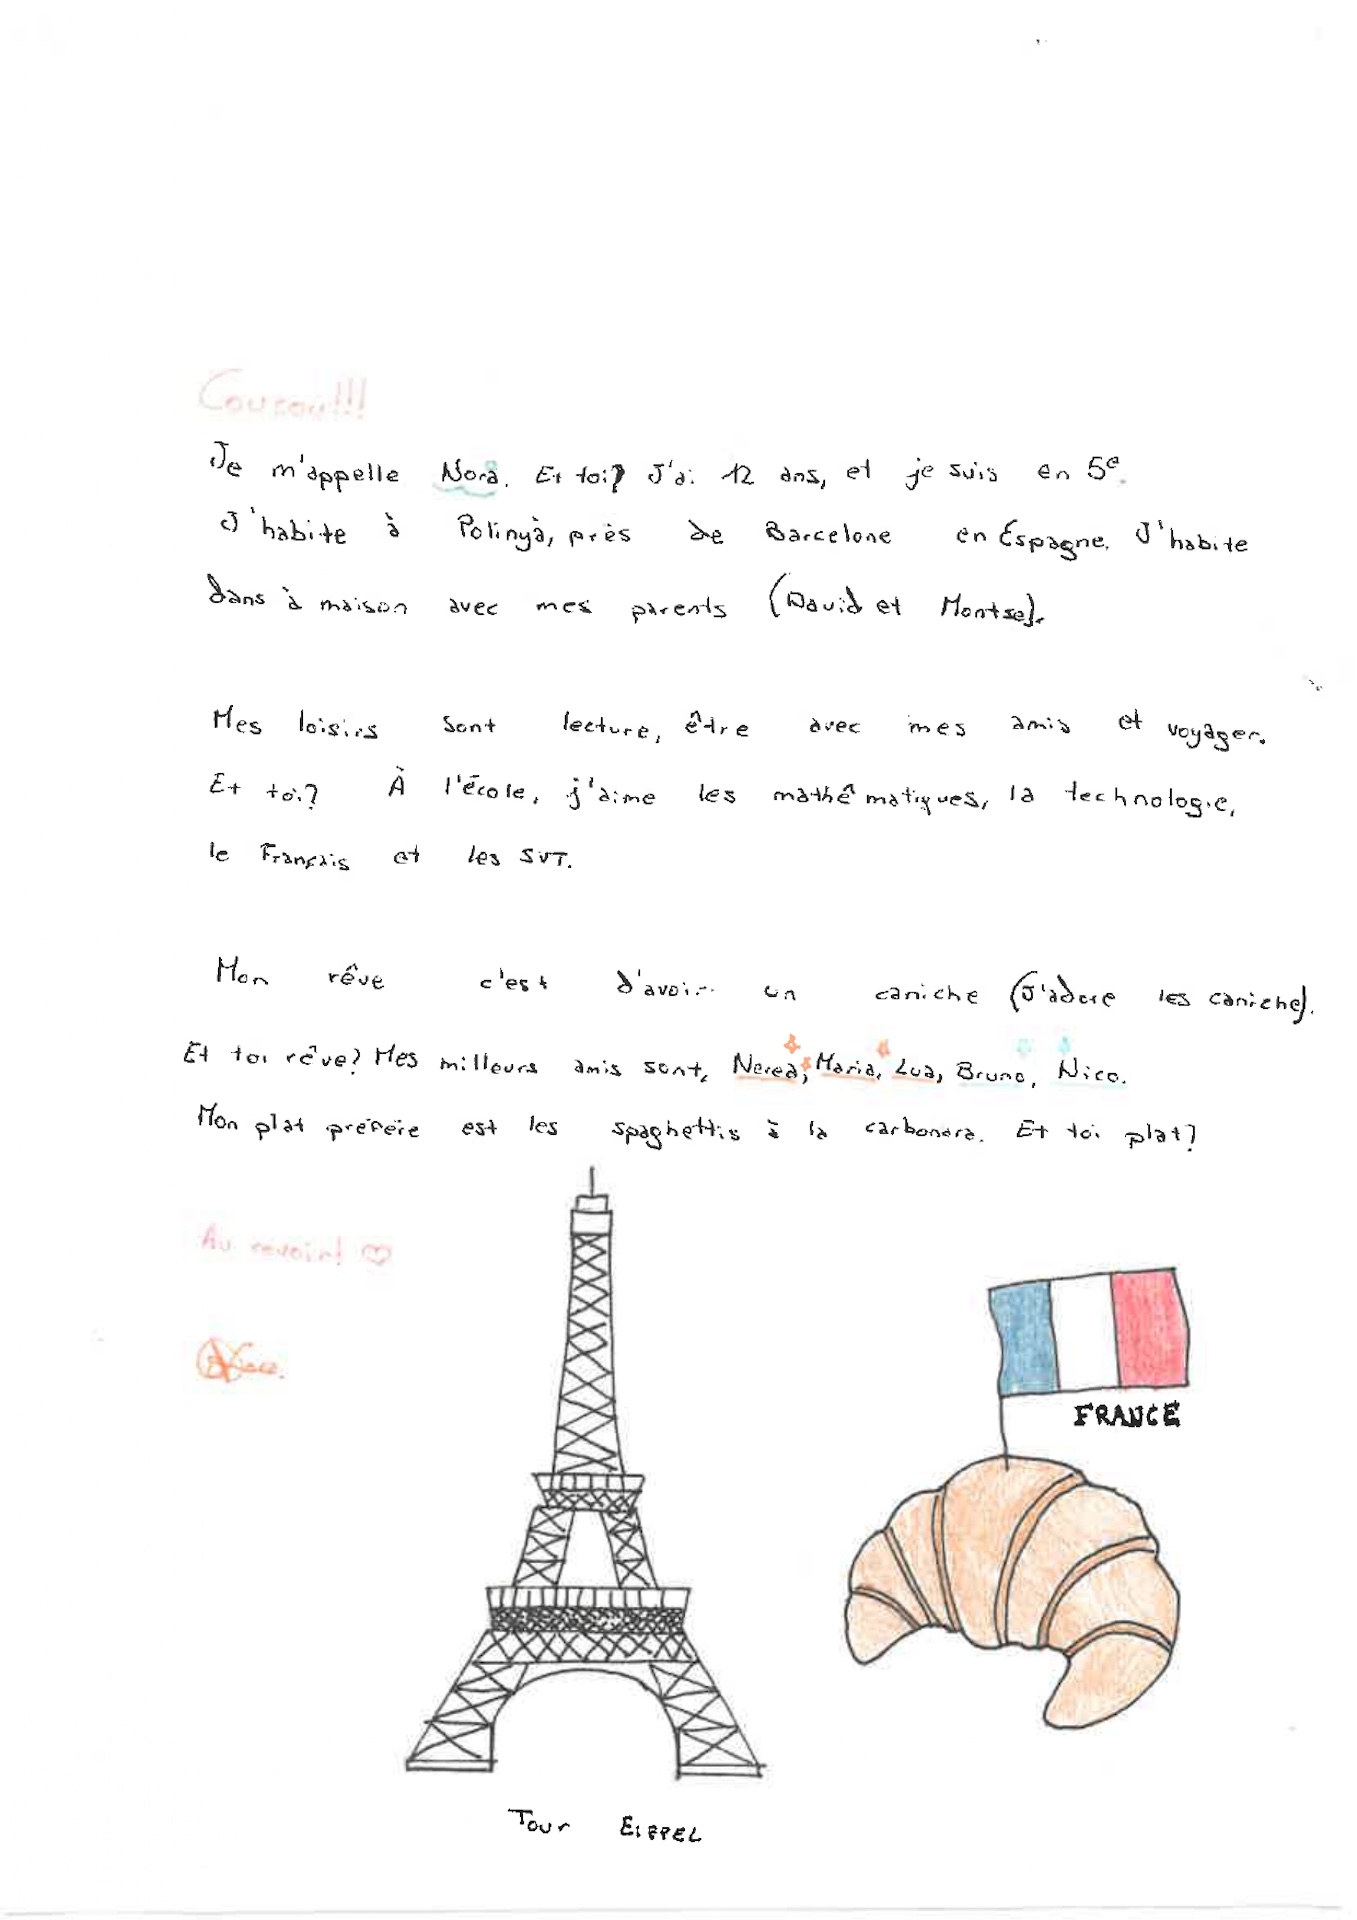 Coucou!!!
Je m'appelle Nora. Et toi? J'ai 12 ans, et je suis en 5e.
J'habite à Polinyà, près de Barcelone en Espagne. J'habite
dans à maison avec mes parents (David et Montse).
Mes loisirs sont lecture, être avec mes amis et voyager.
Et toi? À l'école, j'aime les mathêmatiques, la technologie,
le Français et les SVT.
Mon rêve c'est d'avoir un caniche (J'adore les caniche).
Et toi rêve? Mes milleurs amis sont, Nerea, Maria, Lua, Bruno, Nico.
Mon plat préfére est les spaghettis à la carbonara. Et toi plat?
Au revoir! ♡
FRANCE
Tour EIFFEL